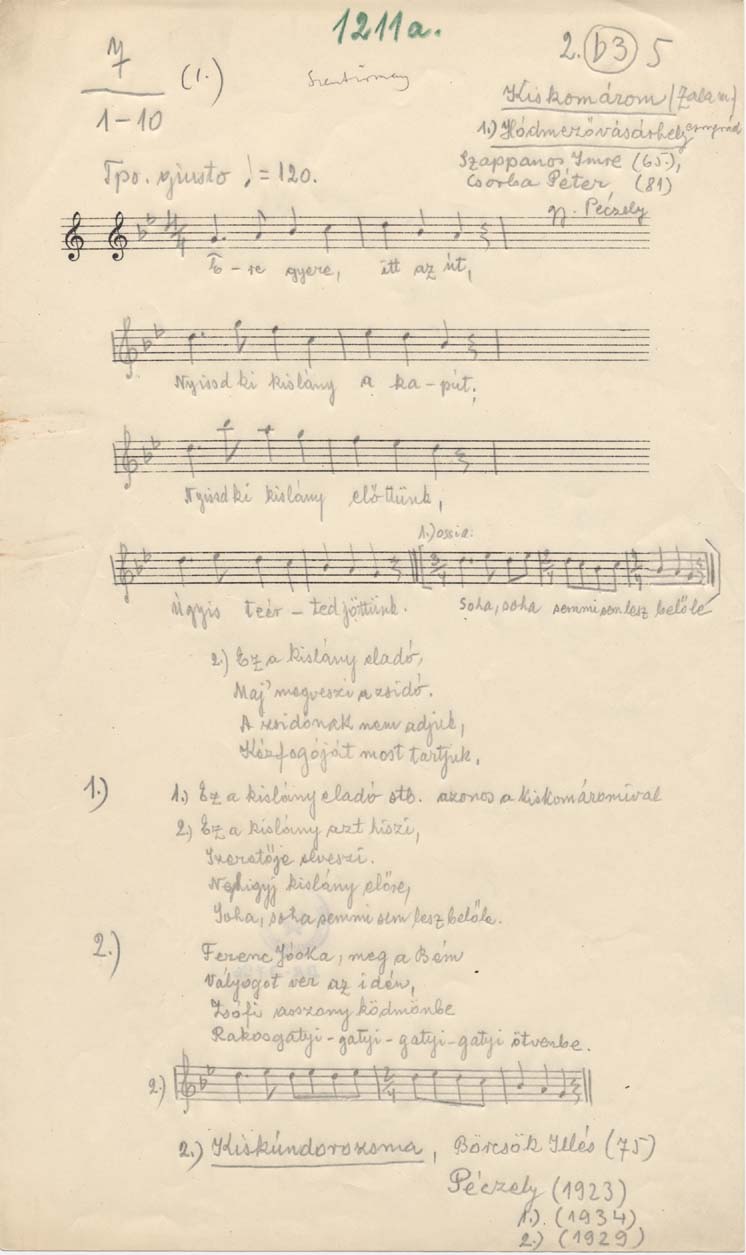 1211a.
7
1-10
(1.)
Szentirmay
2. b3 5
Kiskomárom (Zala m)
1.) Hódmezővásárhely Csongrád
Szappanos Imre (65.),
Csorba Péter, (81)
gy. Péczely
Tpo. giusto ♩=120.
E-re gyere, itt az út,
Nyissd ki kislány a ka-pút;
Nyissd ki kislány előttünk,
1.) ossia:
Úgyis teér-ted jöttünk.
Soha, soha semmi sem lesz belőle
2.) Ez a kislány eladó,
Maj' megveszi a zsidó.
A zsidónak nem adjuk,
Kézfogóját most tartjuk.
1.)
1.) Ez a kislány eladó stb. azonos a kiskomáromival
2.) Ez a kislány azt hiszi,
Szeretője elveszi.
Ne higyj kislány előre,
Soha, soha semmi sem lesz belőle.
2.)
Ferenc Jóska, meg a Bém
Vályogot ver az idén,
Zsófi asszony ködmönbe
Rakosgatyi-gatyi-gatyi-gatyi ötvenbe.
2.)
2.) Kiskúndorozsma, Börcsök Illés (75)
Péczely (1923)
1.). (1934)
2.) (1929)